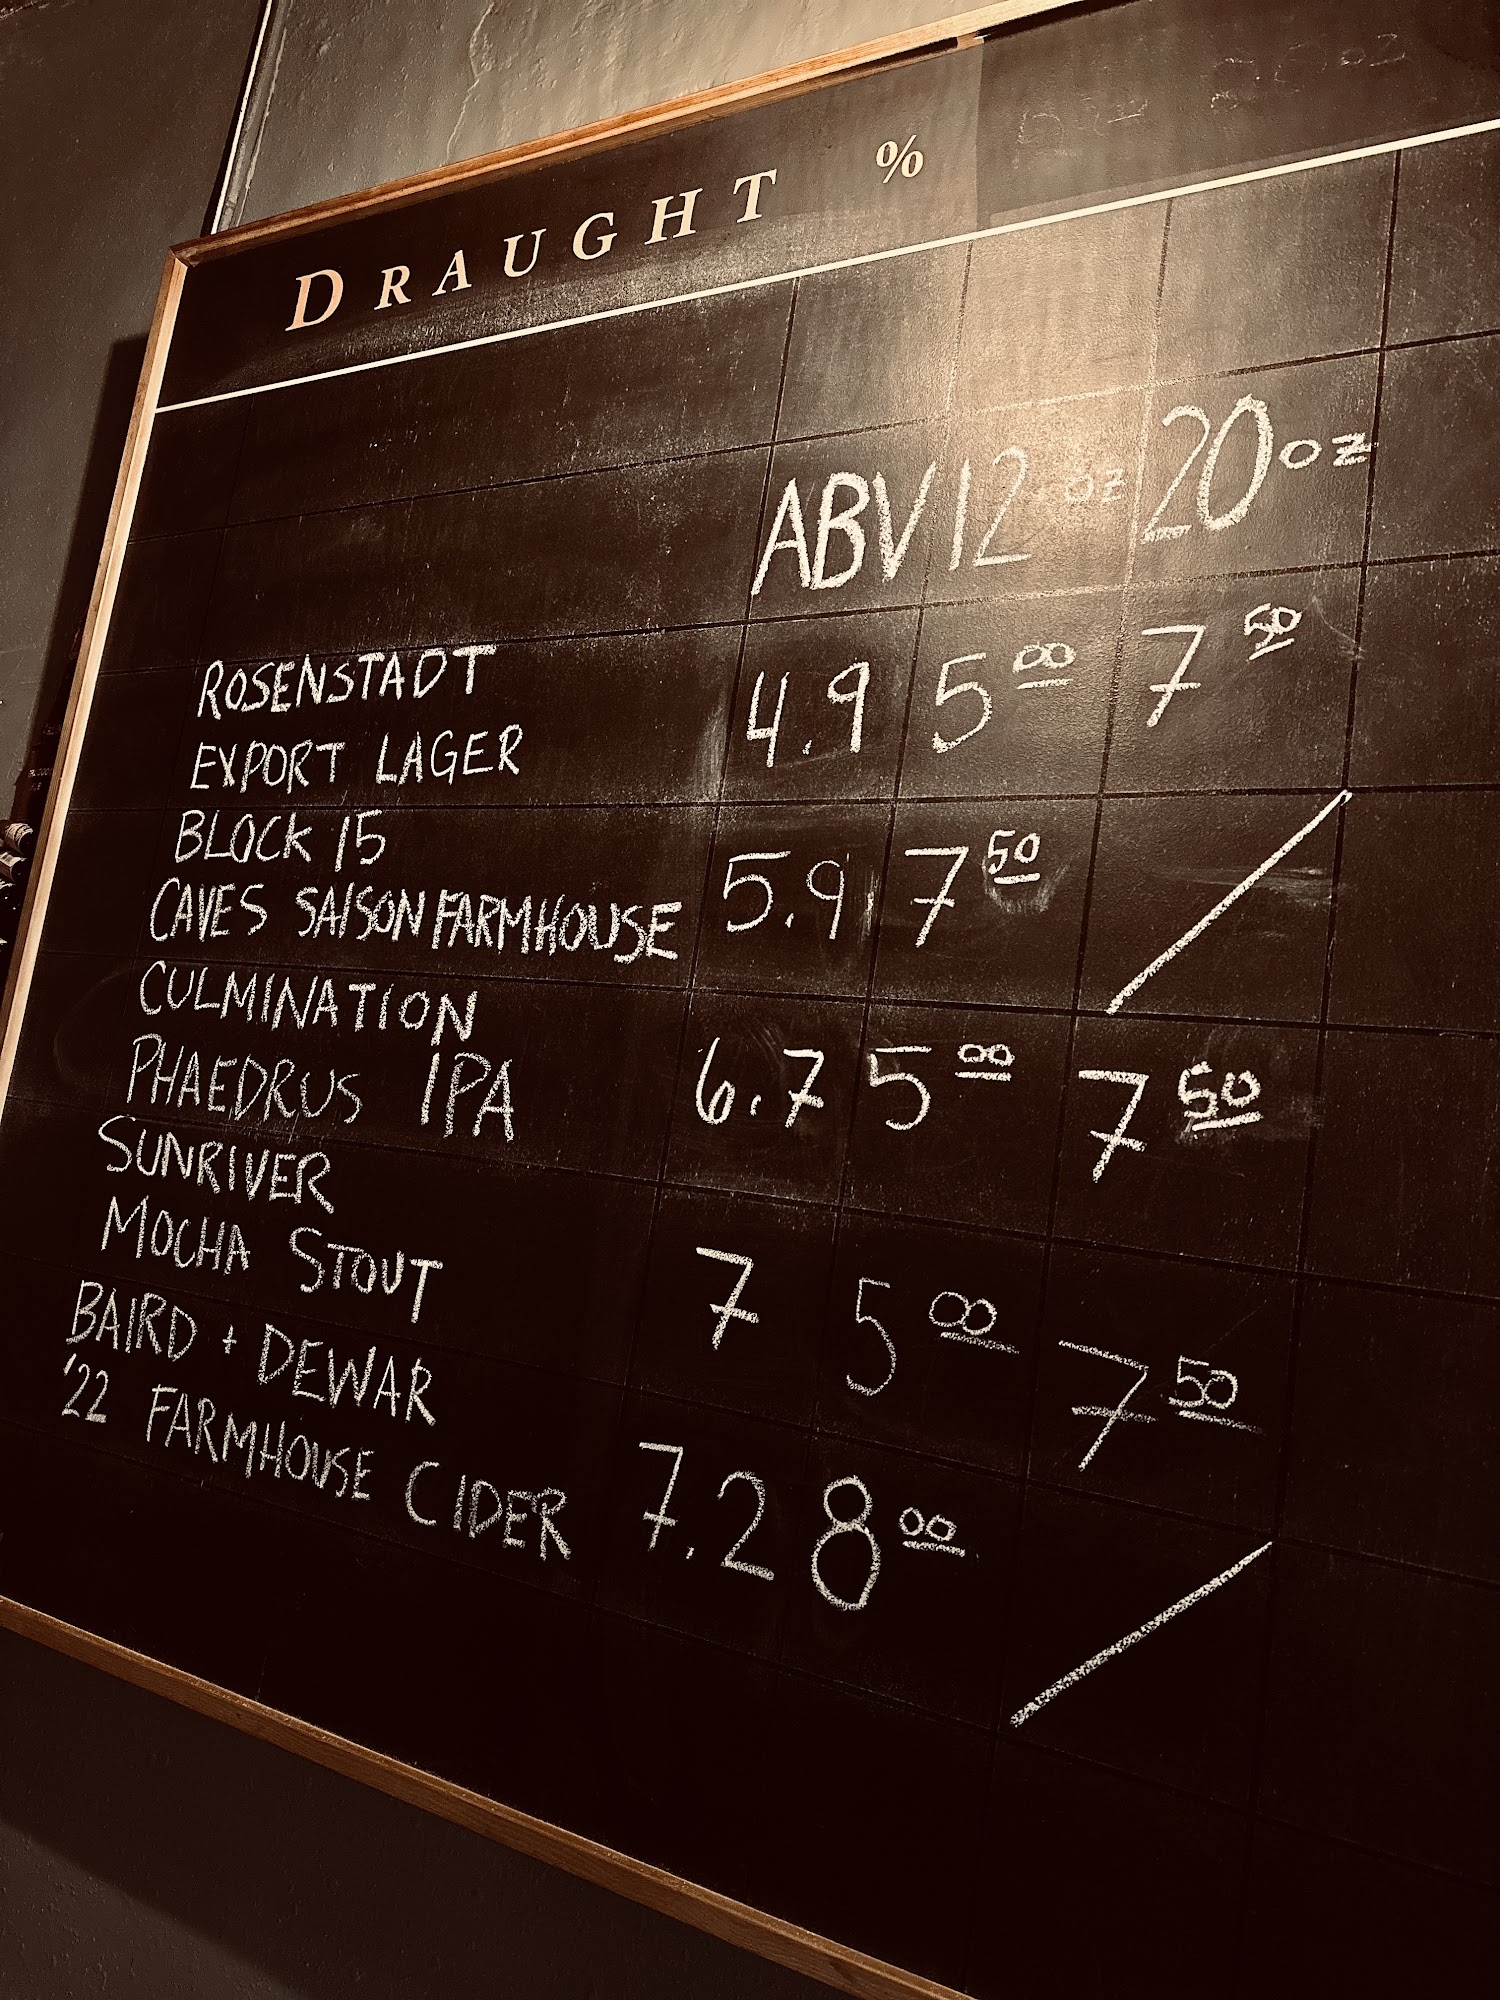 DRAUGHT %
ABV 12 oz 20 oz
ROSENSTADT
EXPORT LAGER 4.9 5 00 7 50
BLOCK 15
CAVES SAISON FARMHOUSE 5.9 7 50 /
CULMINATION
PHAEDRUS IPA 6.7 5 00 7 50
SUNRIVER
MOCHA STOUT 7 5 00 7 50
BAIRD + DEWAR
'22 FARMHOUSE CIDER 7.2 8 00 /